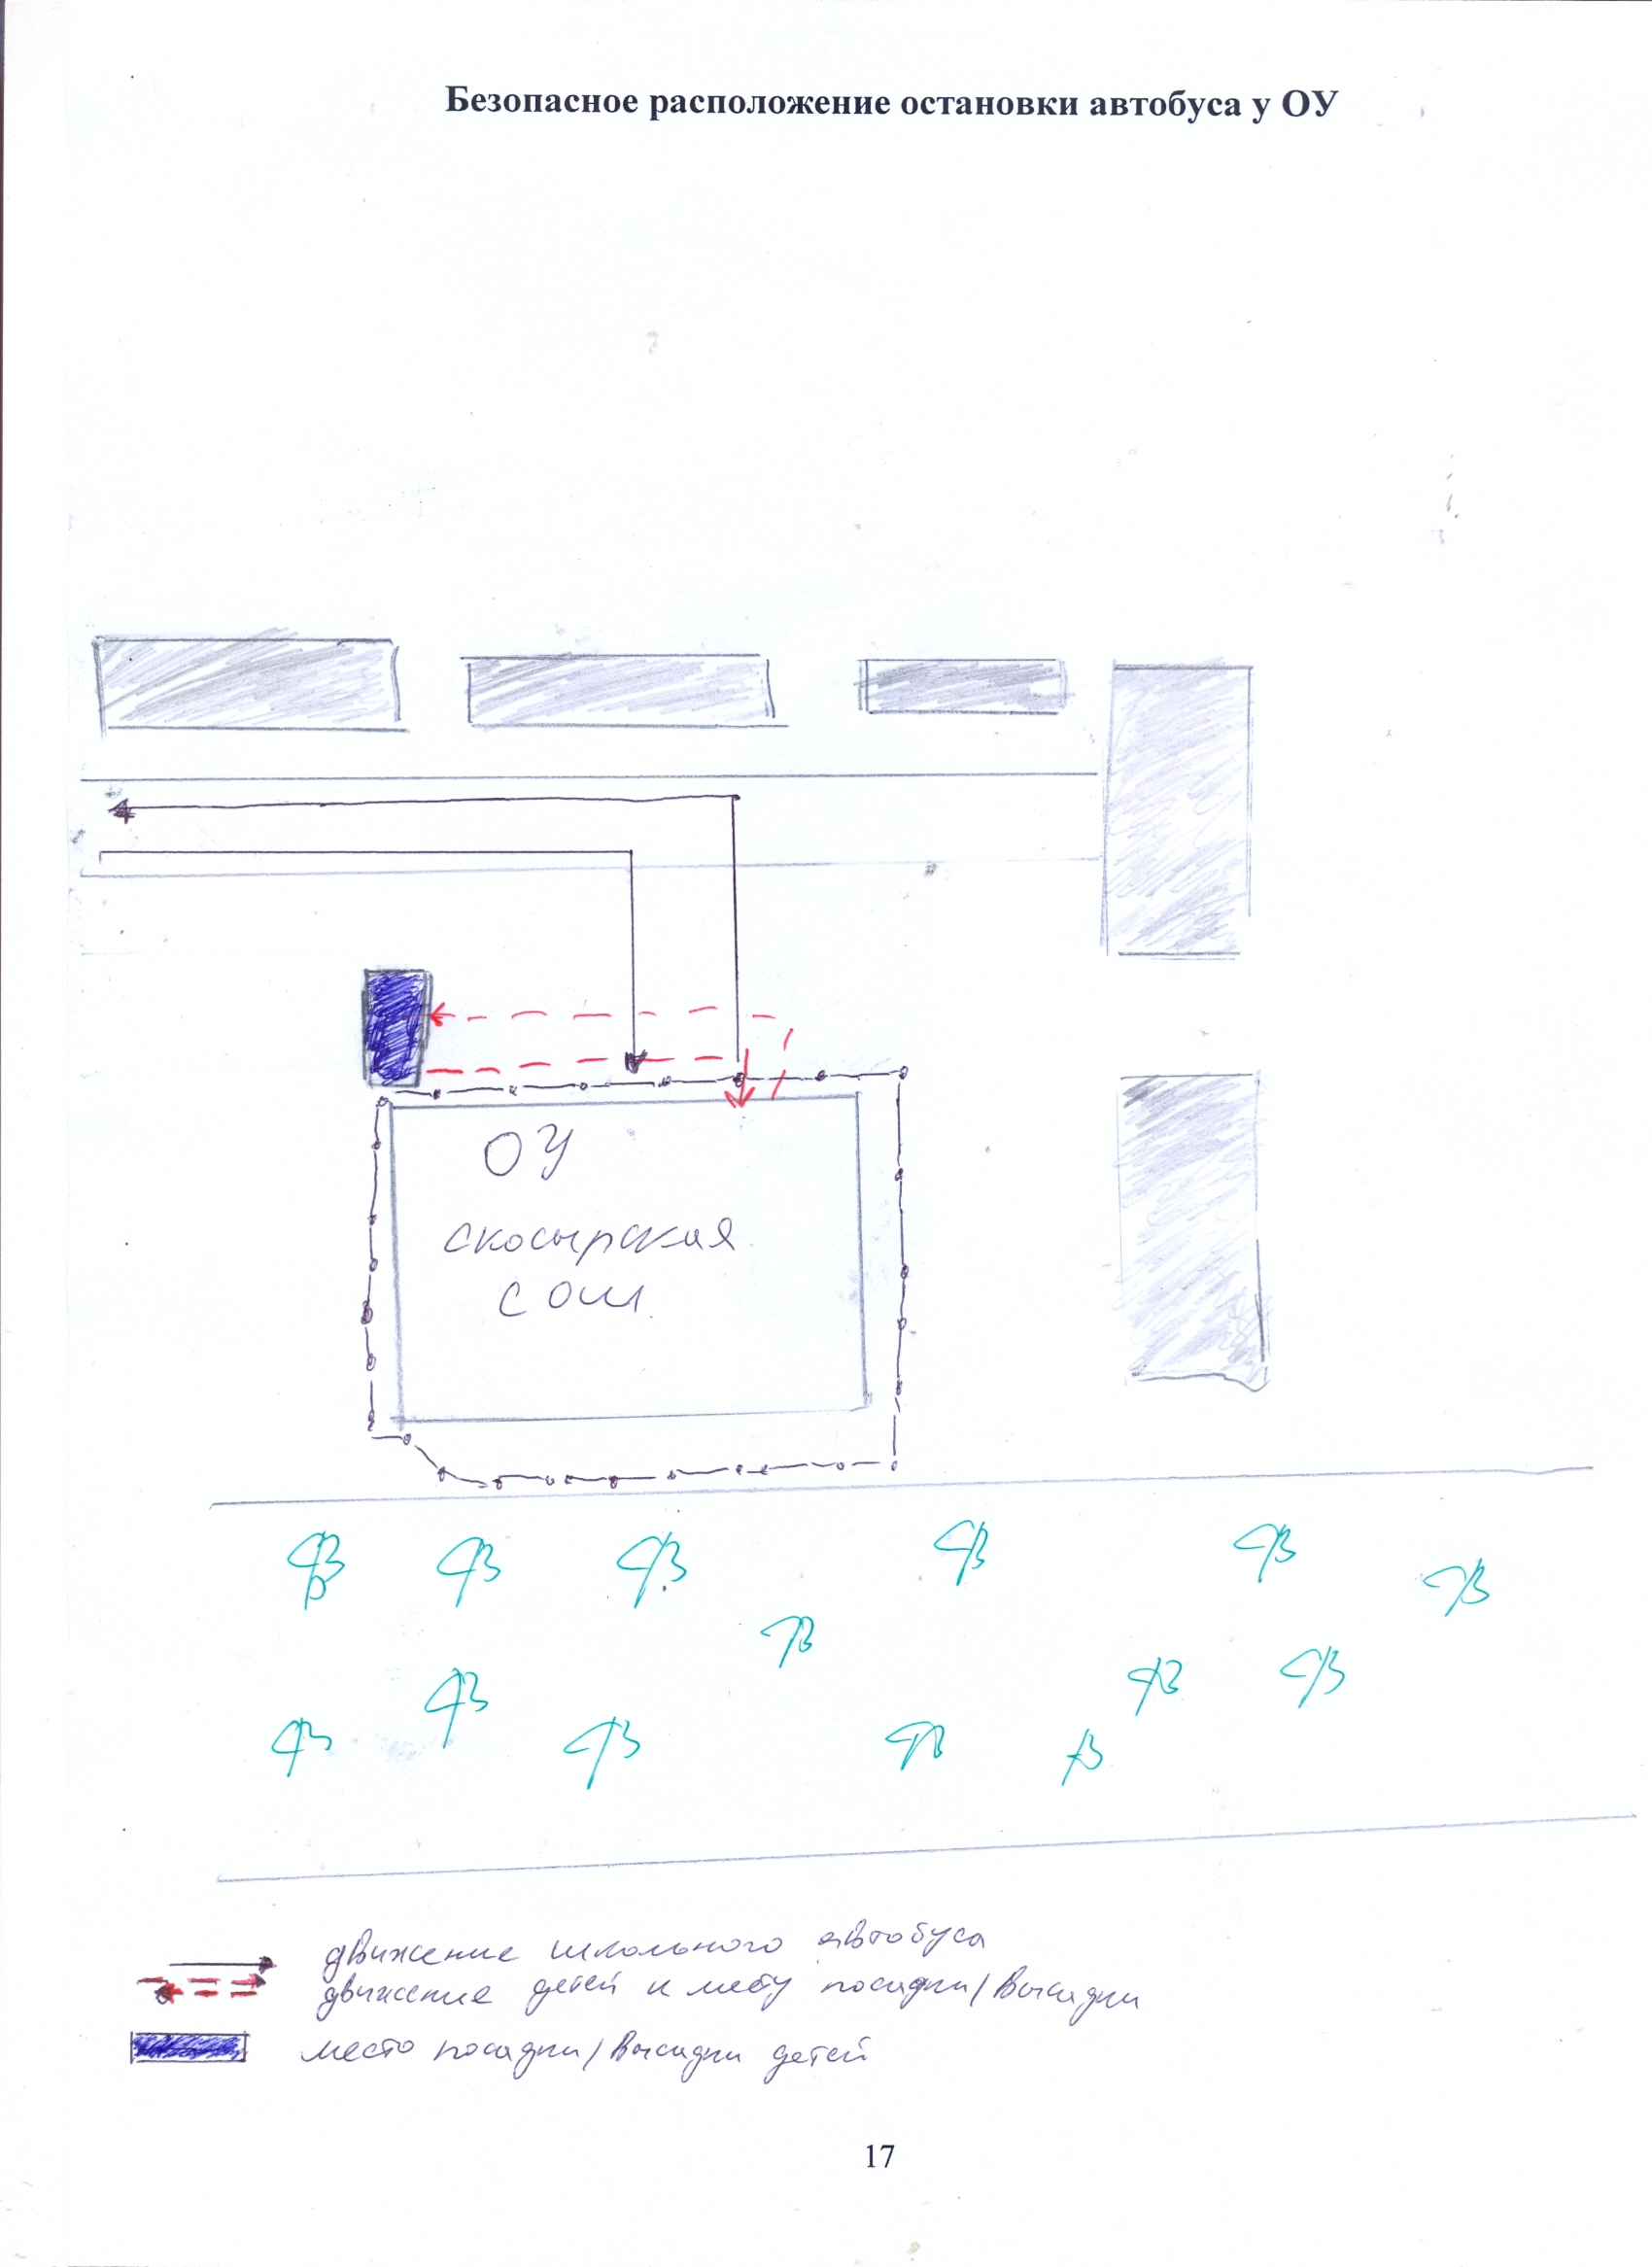 Безопасное расположение остановки автобуса у ОУ
ОУ
скосырская
СОШ
движение школьного автобуса
движение детей к месту посадки/высадки
место посадки/высадки детей
17